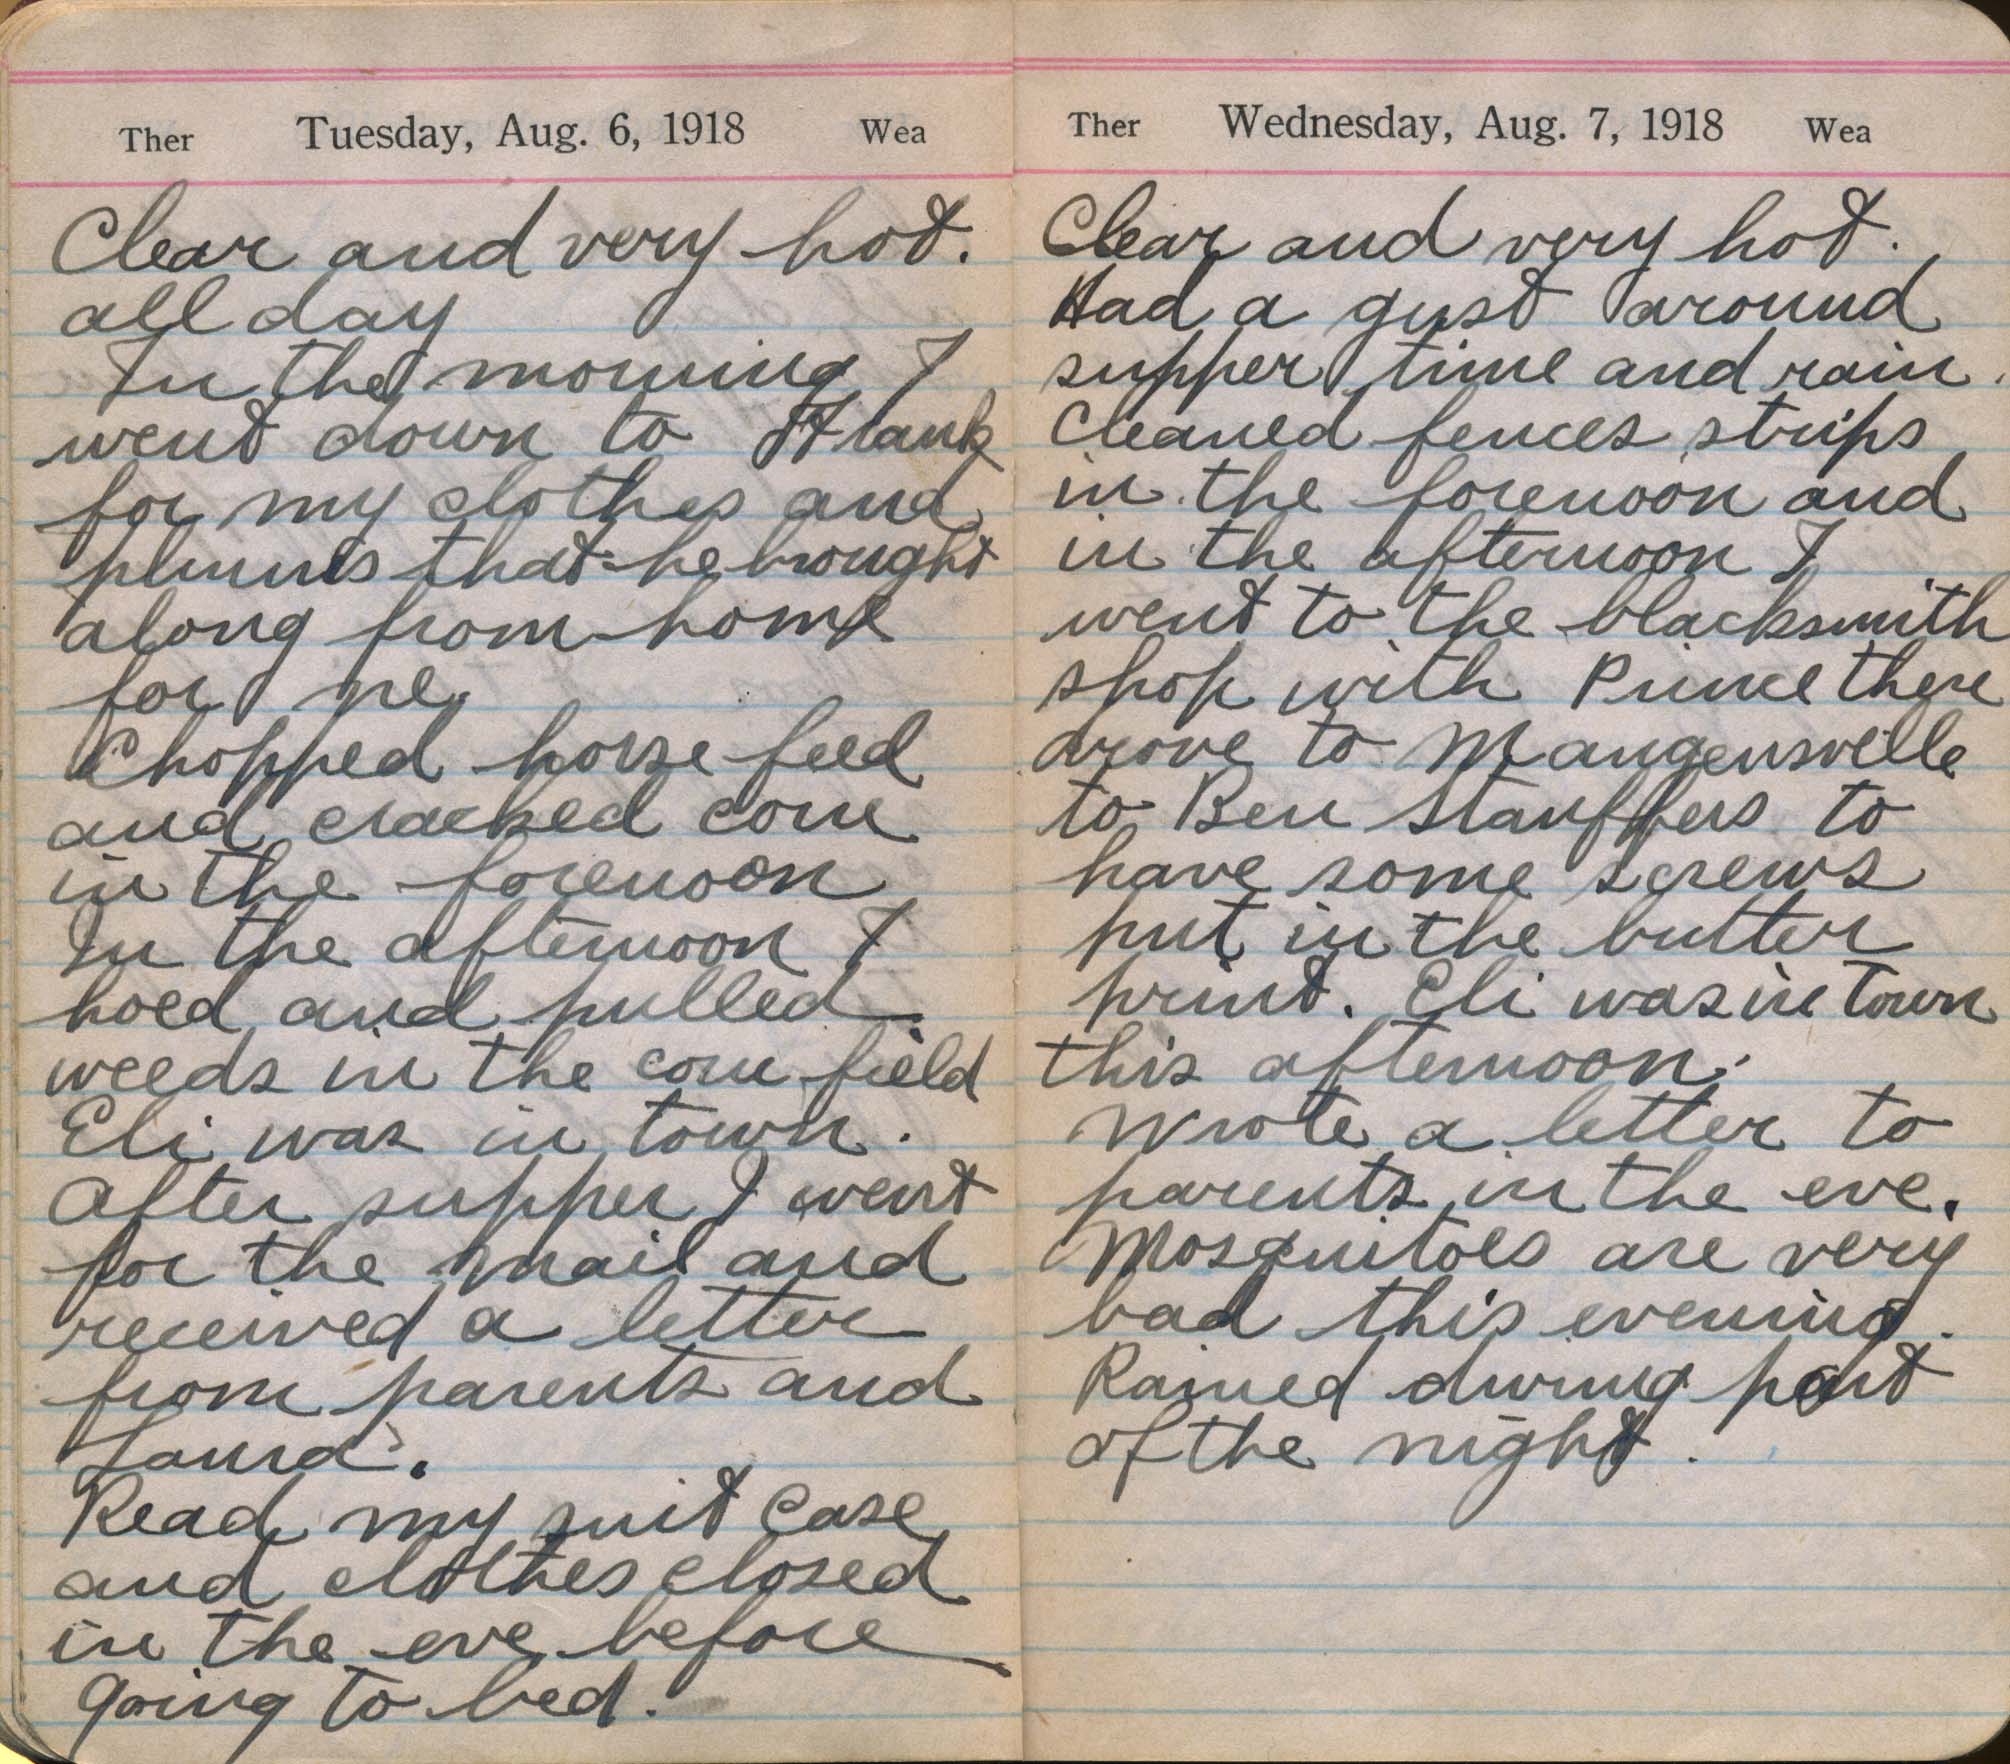 Ther Tuesday, Aug. 6, 1918 Wea
Clear and very hot.
all day
In the morning I
went down to Hank
for my clothes and
plums that he brought
along from home
for me.
Chopped horse feed
and cracked corn
in the forenoon
In the afternoon I
hoed and pulled
weeds in the corn field
Eli was in town.
After supper I went
for the mail and
received a letter
from parents and
Laura.
Read my suit case
and clothes closed
in the eve before
going to bed.
Ther Wednesday, Aug. 7, 1918 Wea
Clear and very hot.
Had a gust around
supper time and rain.
Cleaned fences strips
in the forenoon and
in the afternoon I
went to the blacksmith
shop with Prince there
drove to Maugensville
to Ben Stauffers to
have some screws
put in the butter
print. Eli was in town
this afternoon.
Wrote a letter to
parents in the eve.
Mosquitoes are very
bad this evening.
Rained during part
of the night.